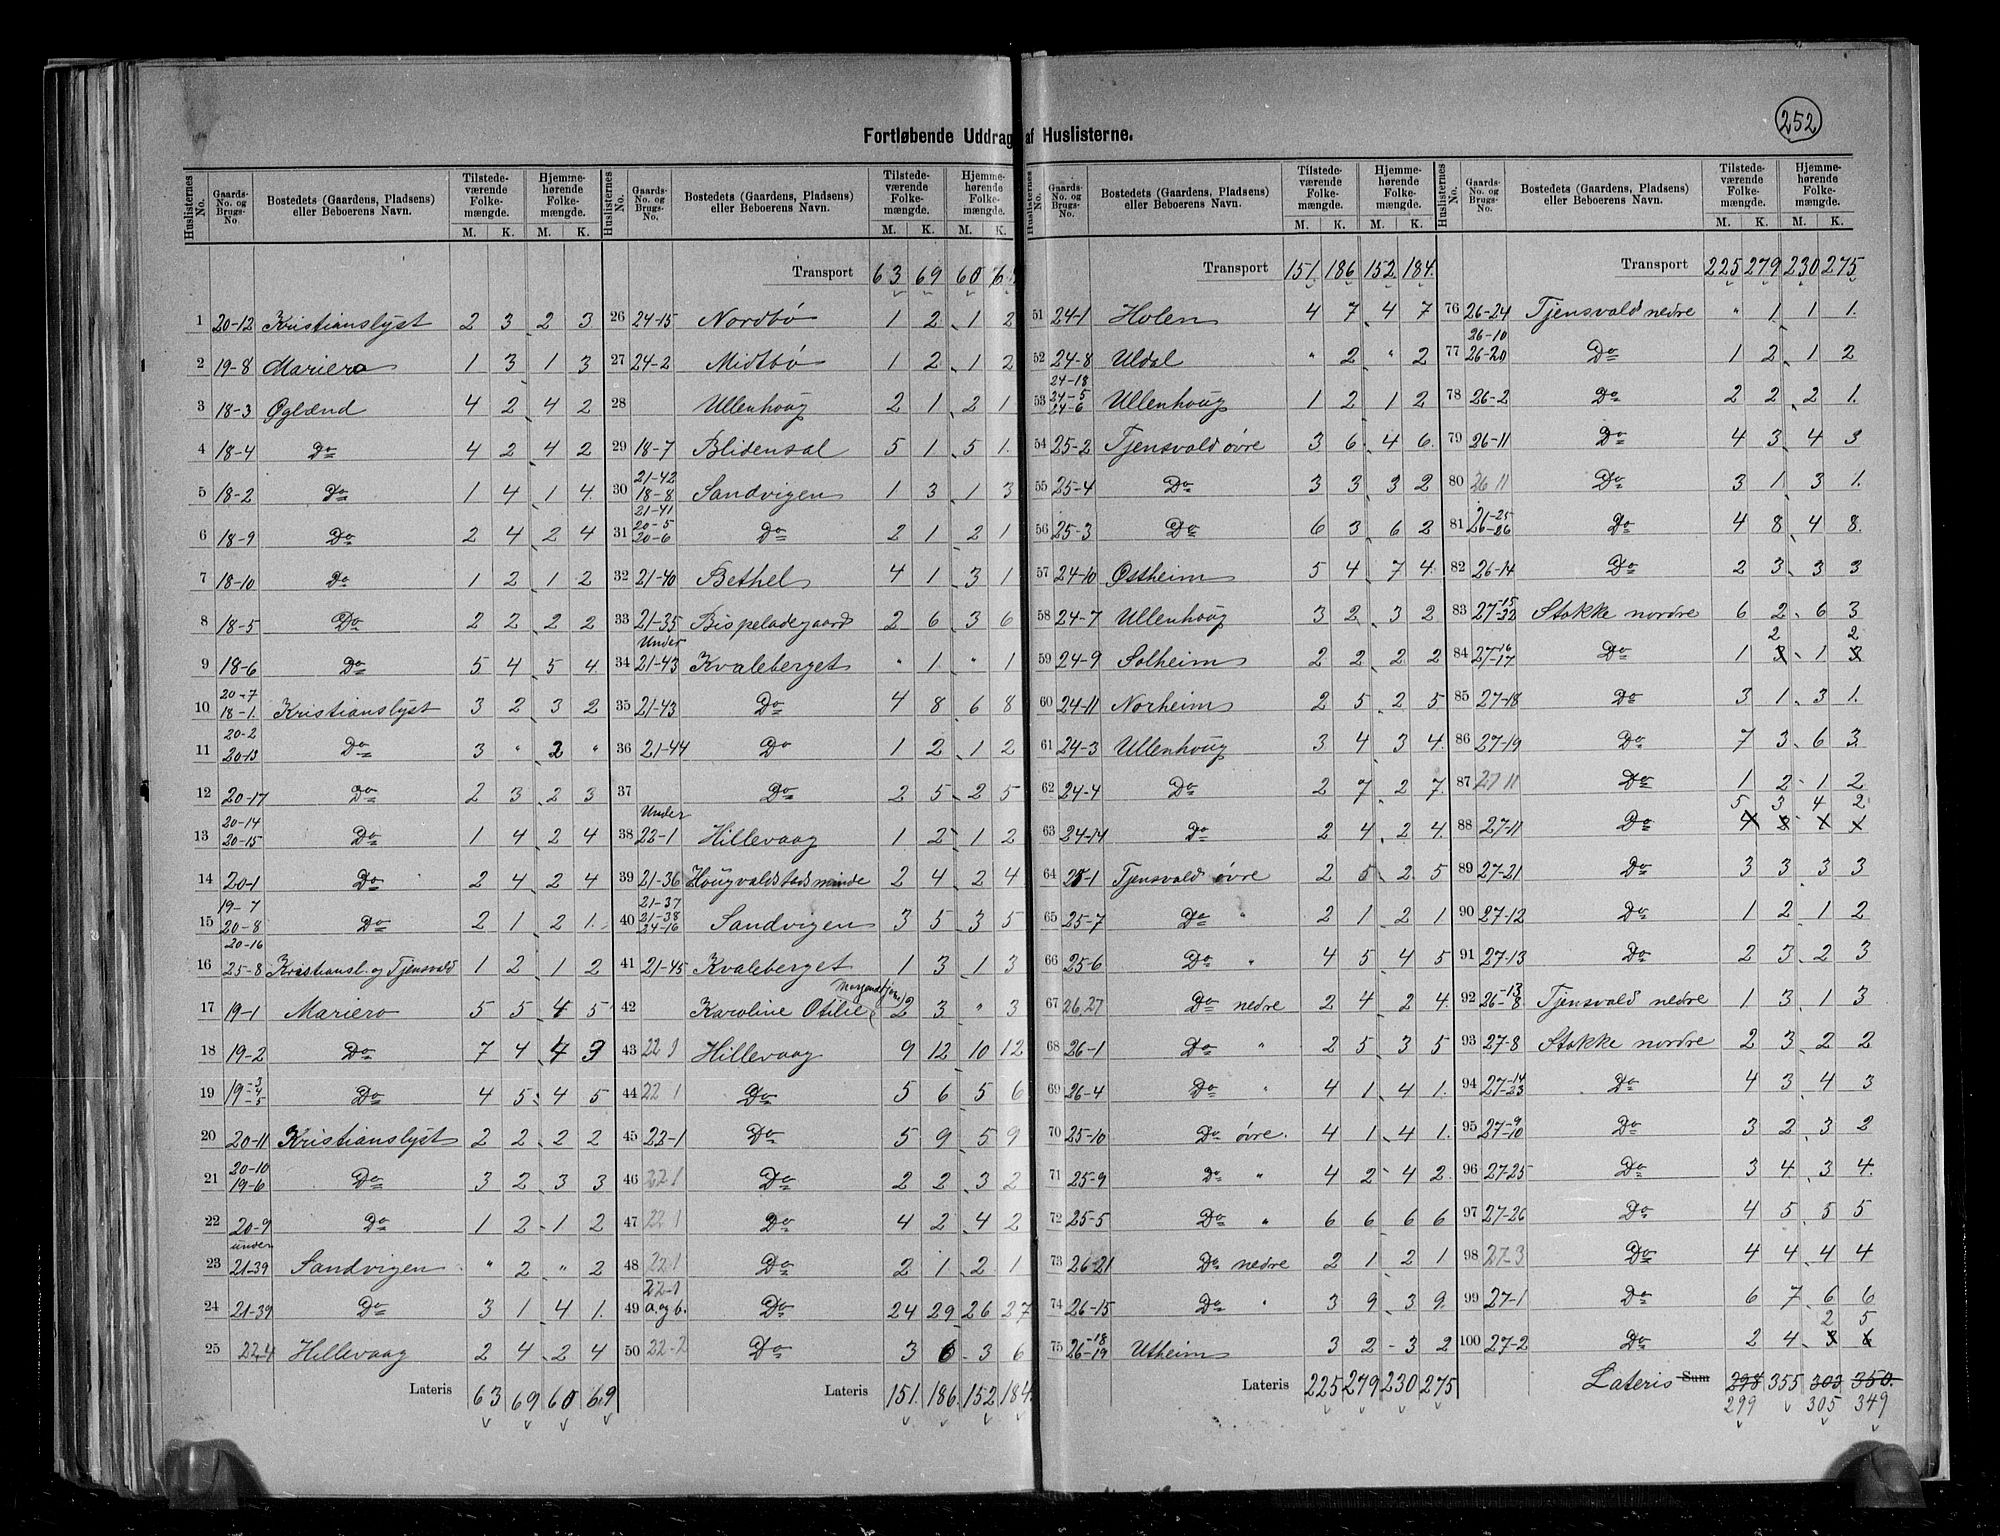 252
Fortløbende Uddrag af Huslisterne.
Huslisternes No. | Gaards-No. og Brugs-No. | Bostedets (Gaardens, Pladsens) eller Beboerens Navn. | Tilstedeværende Folkemængde. M. K. | Hjemmehørende Folkemængde. M. K.
1 20-12 Kristianslyst 2 3 2 3
2 19-8 Mariero 1 3 1 3
3 18-3 Øglænd 4 2 4 2
4 18-4 Do 4 2 4 2
5 18-2 Do 1 4 1 4
6 18-9 Do 2 4 2 4
7 18-10 Do 1 2 1 2
8 18-5 Do 2 2 2 2
9 18-6 Do 5 4 5 4
10 20-7 18-1 Kristianslyst 3 2 3 2
11 20-2 20-13 Do 3 " 2 "
12 20-17 Do 2 3 2 3
13 20-14 20-15 Do 1 4 2 4
14 20-1 Do 2 4 2 4
15 19-7 20-8 Do 2 1 2 1
16 20-16 25-8 Kristiansl. og Tjensvald 1 2 1 2
17 19-1 Mariero 5 5 4 5
18 19-2 Do 7 4 4 3
19 19-3-4-5 Do 4 5 4 5
20 20-11 Kristianslyst 2 2 2 2
21 20-10 19-6 Do 3 2 3 3
22 20-9 Do 1 2 1 2
23 under 21-39 Sandvigen " 2 " 2
24 21-39 Do 3 1 4 1
25 22-4 Hillevaag 2 4 2 4
Lateris 63 69 60 69
Transport 63 69 60 69
26 24-15 Nordbø 1 2 1 2
27 24-2 Midtbø 1 2 1 2
28 Ullenhoug 2 1 2 1
29 18-7 Blidensol 5 1 5 1
30 21-42 18-8 Sandvigen 1 3 1 3
31 21-41 20-5 20-6 Do 2 1 2 1
32 21-40 Bethel 4 1 3 1
33 21-35 Bispeladegaard 2 6 3 6
34 Under 21-43 Kvaleberget " 1 " 1
35 21-43 Do 4 8 6 8
36 21-44 Do 1 2 1 2
37 Do 2 5 2 5
38 Under 22-1 Hillevaag 1 2 1 2
39 21-36 Hougvaldstadsminde 2 4 2 4
40 21-37 21-38 24-16 Sandvigen 3 5 3 5
41 21-45 Kvaleberget 1 3 1 3
42 Karoline Otilie 2 3 " 3
43 22 1 Hillevaag 9 12 10 12
44 22 1 Do 5 6 5 6
45 22-1 Do 5 9 5 9
46 22 1 Do 2 2 3 2
47 22 1 Do 4 2 4 2
48 22-1 Do 2 1 2 1
49 22-1 a. og b. Do 24 29 26 27
50 22-2 Do 3 6 3 6
Lateris 151 186 152 184
Transport 151 186 152 184
51 24-1 Holen 4 7 4 7
52 24-8 Uldal " 2 " 2
53 24-18 24-5 24-6 Ullenhoug 1 2 1 2
54 25-2 Tjensvald øvre 3 6 4 6
55 25-4 Do 3 3 3 2
56 25-3 Do 6 3 6 2
57 24-10 Østheim 5 4 7 4
58 24-7 Ullenhoug 3 2 3 2
59 24-9 Solheim 2 2 2 2
60 24-11 Norheim 2 5 2 5
61 24-3 Ullenhoug 3 4 3 4
62 24-4 Do 2 7 2 7
63 24-14 Do 2 4 2 4
64 25-1 Tjensvald øvre 2 5 2 5
65 25-7 Do " 2 1 2 1
66 25-6 Do " 4 5 4 5
67 26,27 Do nedre 2 4 2 4
68 26-1 Do " 2 5 3 5
69 26-4 Do " 4 1 4 1
70 25-10 Do øvre. 4 1 4 1
71 25-9 Do " 4 2 4 2
72 25-5 Do " 6 6 6 6
73 26-21 Do nedre 2 1 2 1
74 26-15 Do " 3 9 3 9
75 26-18-19 Utheim 3 2 3 2
Lateris 225 279 230 275
Transport 225 279 230 275
76 26-24 Tjensvald nedre " 1 1 1
77 26-10 26-20 Do 1 2 1 2
78 26-2 Do 2 2 2 1
79 26-11 Do 4 3 4 3
80 26 11 Do 3 1 3 1
81 26-25-26 Do 4 8 4 8
82 26-14 Do 2 3 3 3
83 27-15-32 Stokke nordre 6 2 6 3
84 27-16-17 Do 1 3 2 1 3 2
85 27-18 Do 3 1 3 1
86 27-19 Do 7 3 6 3
87 27 11 Do 1 2 1 2
88 27-11 Do 5 3 4 2
89 27-21 Do 3 3 3 3
90 27-12 Do 1 2 1 2
91 27-13 Do 2 3 2 3
92 26-13-8 Tjensvald nedre 1 3 1 3
93 27-8 Stokke nordre 2 3 2 2
94 27-14-23 Do 4 3 4 3
95 27-9-10 Do 3 2 3 2
96 27-25 Do 3 4 3 4
97 27-26 Do 4 5 5 5
98 27-3 Do 4 4 4 4
99 27-1 Do 6 7 6 6
100 27-2 Do 2 4 3 2 6 5
Lateris Sum 298 355 303 350
299 305 349